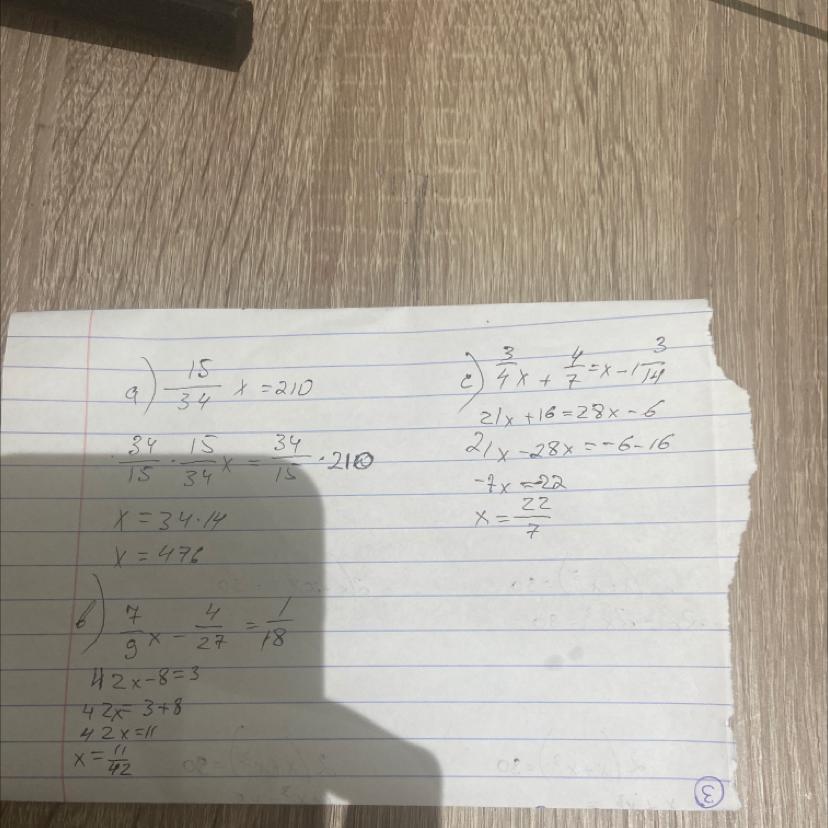 a) 15/34 x = 210
34/15 · 15/34 x = 34/15 · 210
x = 34·14
x = 476
b) 7/9 x - 4/27 = 1/18
42x-8=3
42x=3+8
42x=11
x=11/42
c) 3/4 x + 4/7 = x - 1 3/14
21x+16=28x-6
21x-28x=-6-16
-7x=-22
x=22/7
3